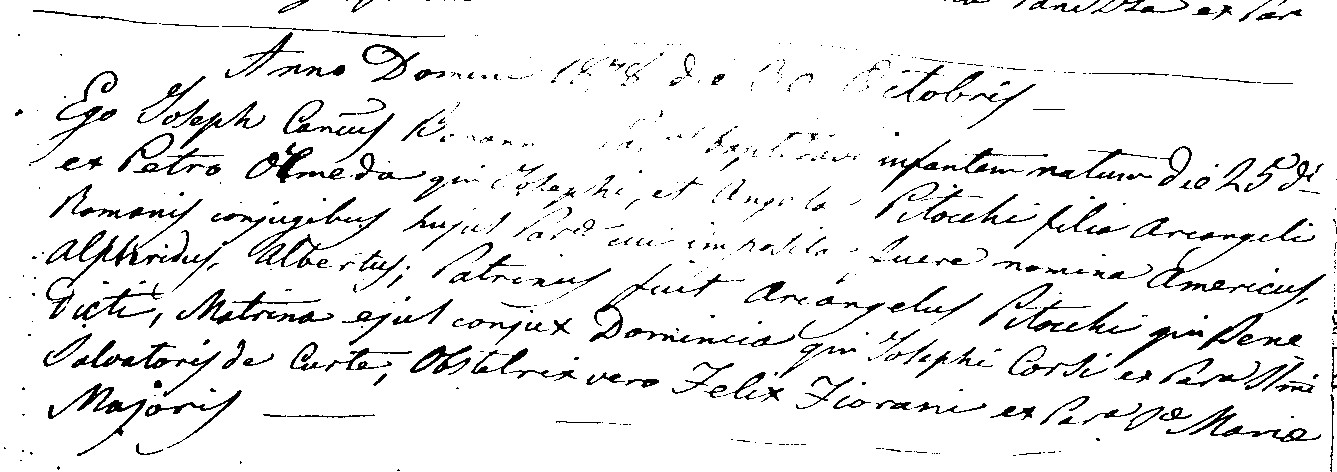 ex Par
Anno Domini 1878 die 30 Octobris —
Ego Joseph Canius Roman baptizavi infantem natum die 25 di
ex Petro Olmeda qm Josephi, et Angela Pitocchi filia Arcangeli
Romanis conjugibus hujus Par. cui imposita fuere nomina Americus,
Alphridus, Albertus; Patrinus fuit Arcangelus Pitocchi qm Bene
dicti, Matrina ejus conjux Dominica qm Josephi Corsi ex Para SSmi
Salvatoris de Curte, Obstetrix vero Felix Fiorani ex Para Se Mariæ
Majoris —